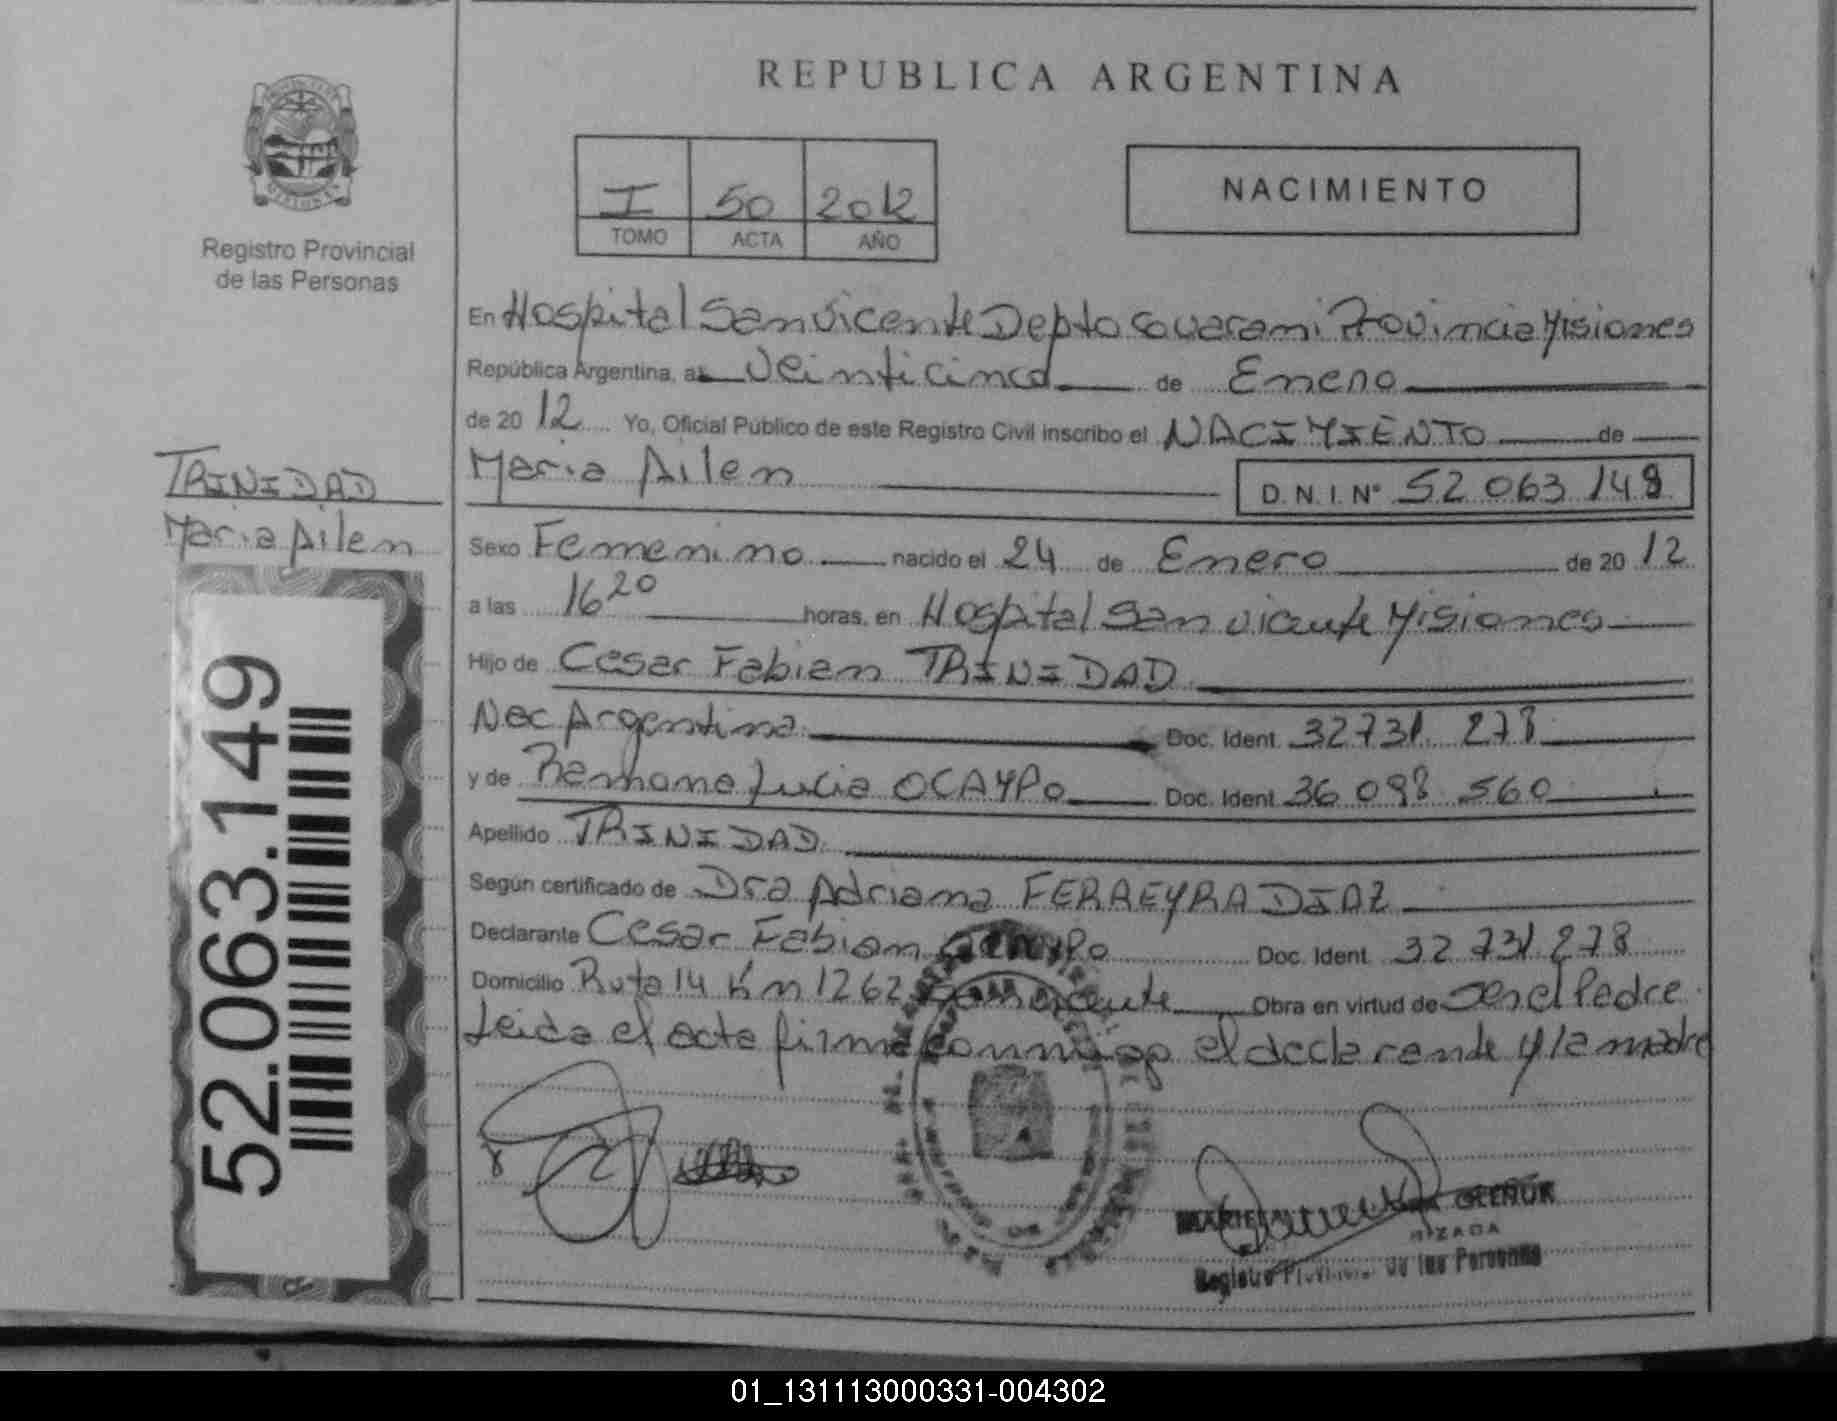 REPUBLICA ARGENTINA
I 50 2012
TOMO ACTA AÑO
NACIMIENTO
Registro Provincial
de las Personas
En Hospital San Vicente Depto Guarani Provincia Misiones
República Argentina, a Veinticinco de Enero
de 20 12 Yo, Oficial Público de este Registro Civil inscribo el NACIMIENTO de
Maria Ailen D.N.I. N° 52 063 149
TRINIDAD
Maria Ailen
Sexo Femenino nacido el 24 de Enero de 20 12
a las 16 20 horas, en Hospital San Vicente Misiones
Hijo de Cesar Fabian TRINIDAD
Nac Argentina Doc. Ident. 32731 278
y de Ramona Lucia OCAMPO Doc. Ident. 36 098 560
Apellido TRINIDAD
Según certificado de Dra Adriana FERREYRA DIAZ
Declarante Cesar Fabian Doc. Ident. 32 731 278
Domicilio Ruta 14 Km 1262 San Vicente Obra en virtud de ser el Padre
Leida el acta firma conmigo el declarante y la madre
52.063.149
Registro Provincial de las Personas
01_131113000331-004302